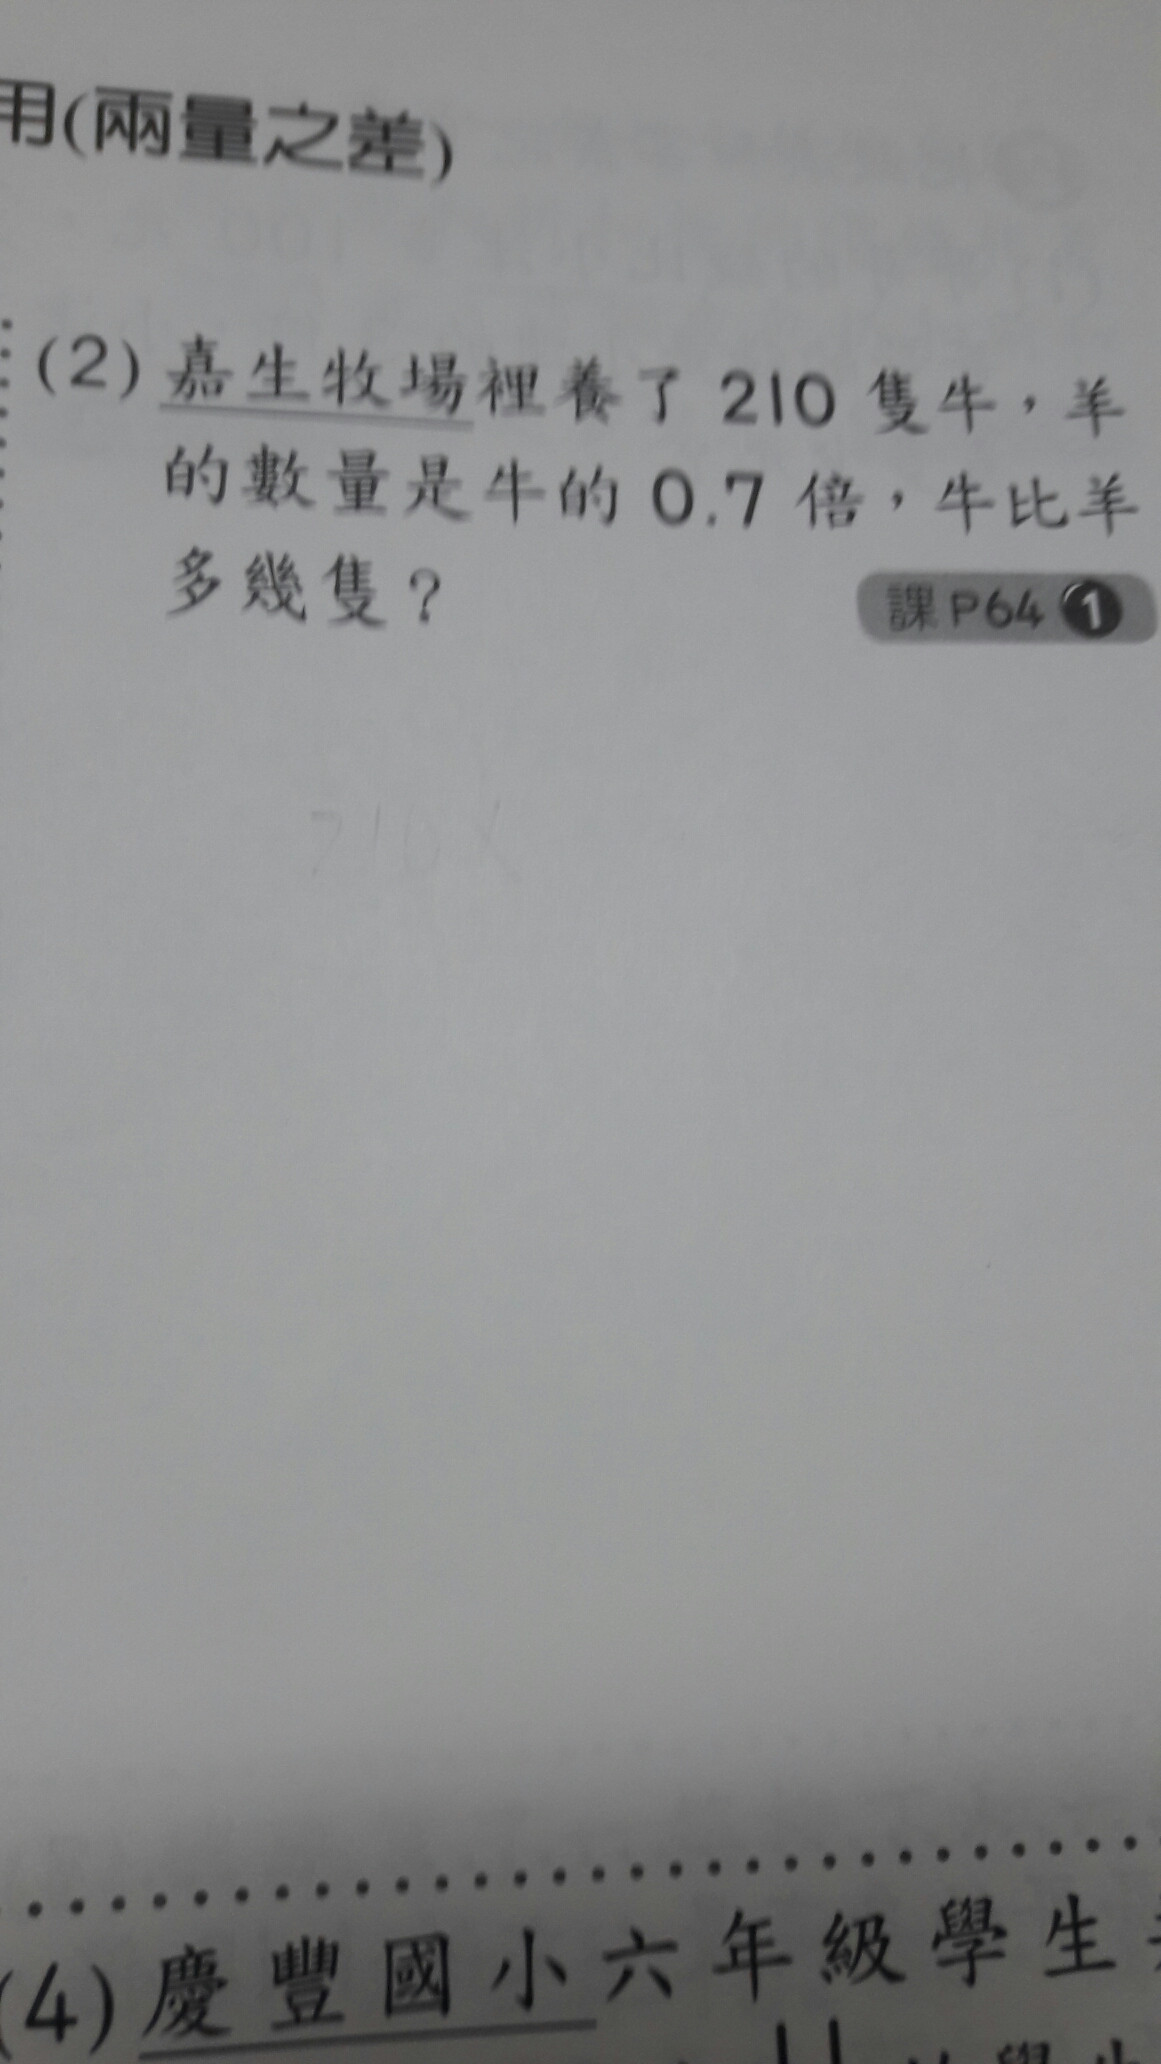 用(兩量之差)
(2) 嘉生牧場裡養了 210 隻牛，羊
的數量是牛的 0.7 倍，牛比羊
多幾隻？
課P64 1
210×
(4) 慶豐國小六年級學生